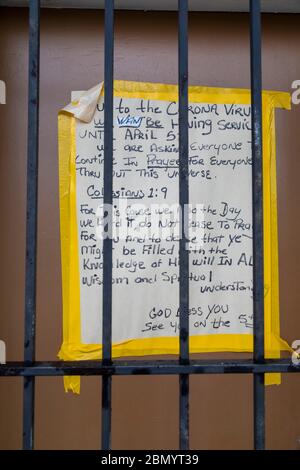 to the Corona Viru
We Won't Be Having Servic
Until April 5th
We are Asking Everyone T
Continue In Prayer For Everyone
Thru Out This Universe.
Colossians 1:9
For this cause we the Day
we heard it, do not cease To Pra
For you and to desire that ye
Might be Filled with the
Knowledge of His will In AL
Wisdom and Spiritual
Understand
God Bless You
See You on the 5th
alamy
Image ID: 2BMYT39
www.alamy.com